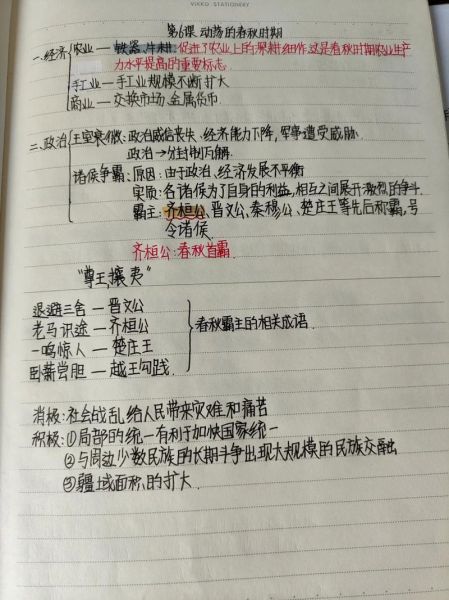 VIKKO STATIONERY
第6课 动荡的春秋时期
一、经济 农业—铁器、牛耕:促进了农业上的深耕细作,这是春秋时期农业生产
力水平提高的重要标志
手工业—手工业规模不断扩大
商业—交换市场、金属货币
二、政治 王室衰微:政治威信丧失、经济能力下降,军事遭受威胁
政治→分封制瓦解.
诸侯争霸、原因:由于政治、经济发展不平衡
实质:各诸侯为了自身的利益,相互之间展开激烈的争斗.
霸主:齐桓公、晋文公、秦穆公、楚庄王等先后称霸,号
令诸侯.
齐桓公:春秋首霸.
“尊王攘夷”
退避三舍—晋文公
老马识途—齐桓公
一鸣惊人—楚庄王
卧薪尝胆—越王勾践.
春秋霸主的相关成语.
消极:社会战乱给人民带来灾难和痛苦
积极:①局部的统一有利于加快国家统一
②与周边少数民族的长期斗争出现大规模的民族交融
③疆域面积的扩大.